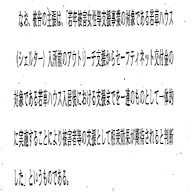 なお、被告の主張は、「若年被害女性等支援事業の対象である若草ハウス
(シェルター)入所前のアウトリーチ支援からセーフティネット交付金の
対象である若草ハウス入居後における支援までを一連のものとして一体的
に実施することにより被害者等の支援として相乗効果が期待されると判断
した」というものである。